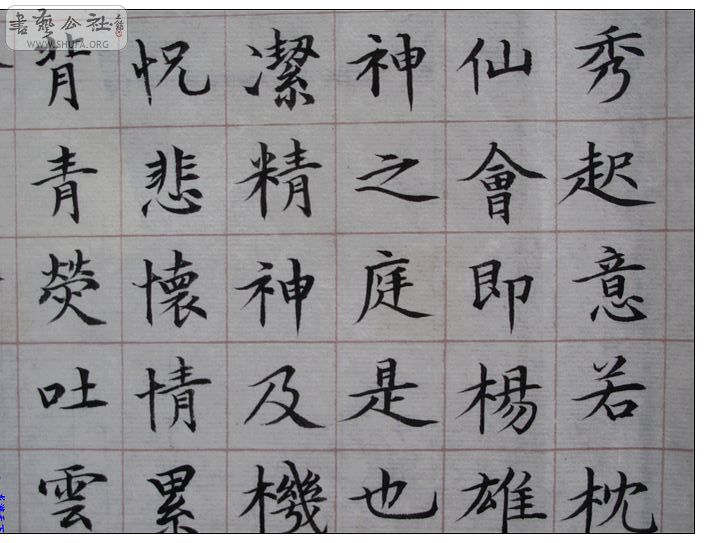 書藝公社
WWW.SHUFA.ORG
秀起意若枕
仙會即楊雄
神之庭是也
潔精神及機
怳悲懷情累
背青熒吐雲